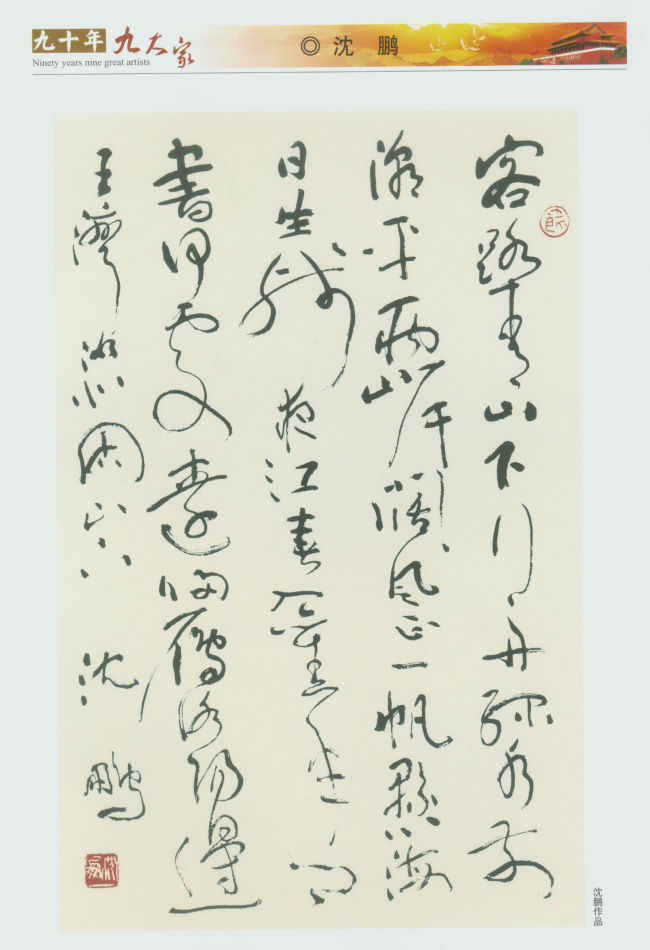 九十年九大家
Ninety years nine great artists
◎ 沈 鹏
客路青山下行舟綠水前
潮平兩岸闊風正一帆懸海
日生殘夜江春入舊年鄉
書何處達歸雁洛陽邊
王灣 次北固山下 沈鵬
沈鹏作品